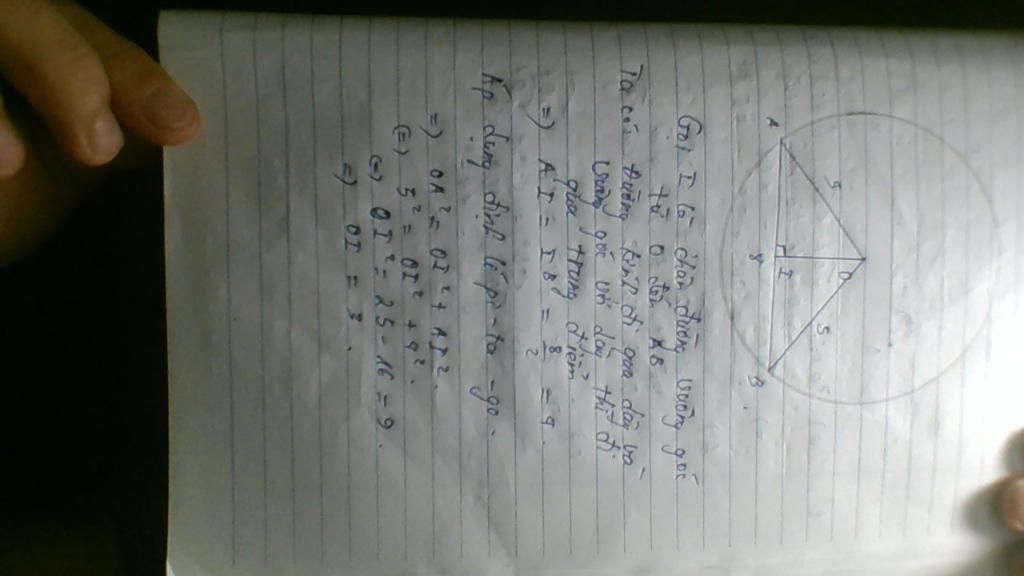 A
5
O
5
8
I
B
Gọi I là chân đường vuông góc
từ O đến AB
Ta có: đường kính đi qua dây và
vuông góc với dây thì đi
qua trung điểm.
=) AI = IB = 8/2 = 4.
Áp dụng định lí pi-ta-go.
=) OA² = OI² + AI².
(=) 5² = OI² + 4².
(=) OI² = 25 - 16 = 9.
=) OI = 3.